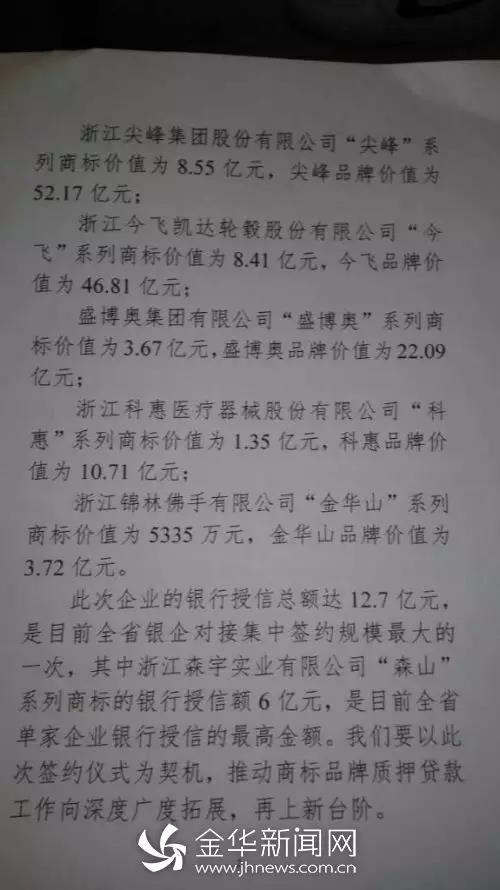 浙江尖峰集团股份有限公司“尖峰”系
列商标价值为 8.55 亿元，尖峰品牌价值为
52.17 亿元；
浙江今飞凯达轮毂股份有限公司“今
飞”系列商标价值为 8.41 亿元，今飞品牌价
值为 46.81 亿元；
盛博奥集团有限公司“盛博奥”系列商
标价值为 3.67 亿元，盛博奥品牌价值为 22.09
亿元；
浙江科惠医疗器械股份有限公司“科
惠”系列商标价值为 1.35 亿元，科惠品牌价
值为 10.71 亿元；
浙江锦林佛手有限公司“金华山”系列
商标价值为 5335 万元，金华山品牌价值为
3.72 亿元。
此次企业的银行授信总额达 12.7 亿元，
是目前全省银企对接集中签约规模最大的
一次，其中浙江森宇实业有限公司“森山”
系列商标的银行授信额 6 亿元，是目前全省
单家企业银行授信的最高金额。我们要以此
次签约仪式为契机，推动商标品牌质押贷款
工作向深度广度拓展，再上新台阶。
金华新闻网
www.jhnews.com.cn